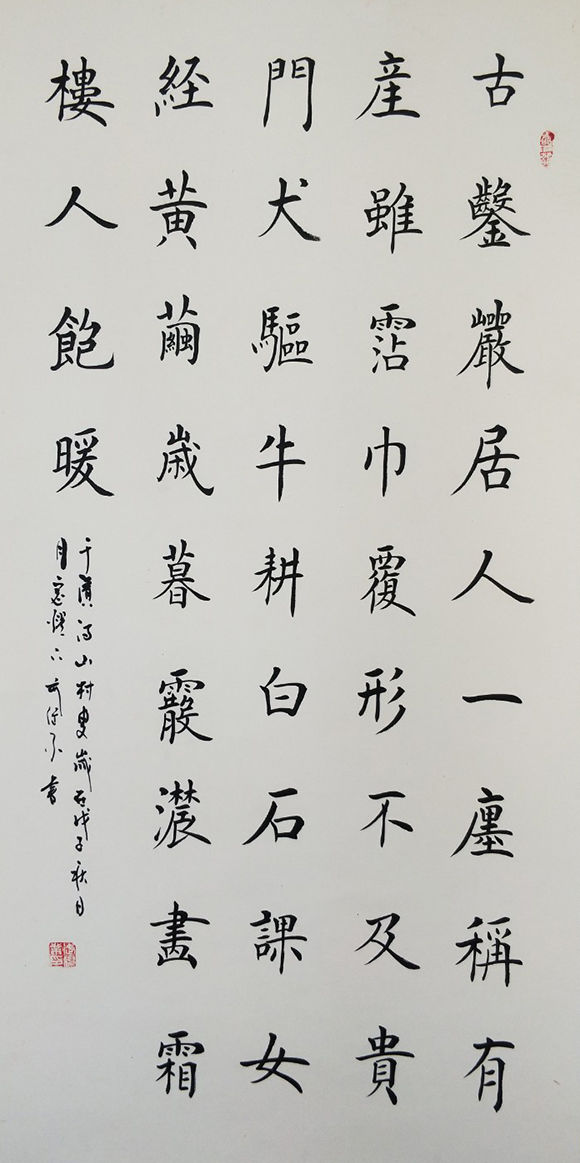 古鑿巖居人一廛稱有
産雖霑巾覆形不及貴
門犬驅牛耕白石課女
経黄繭歳暮霰濃畫霜
樓人飽暖
于濆詩山村叟歲在戊子秋日
月窓燈下書